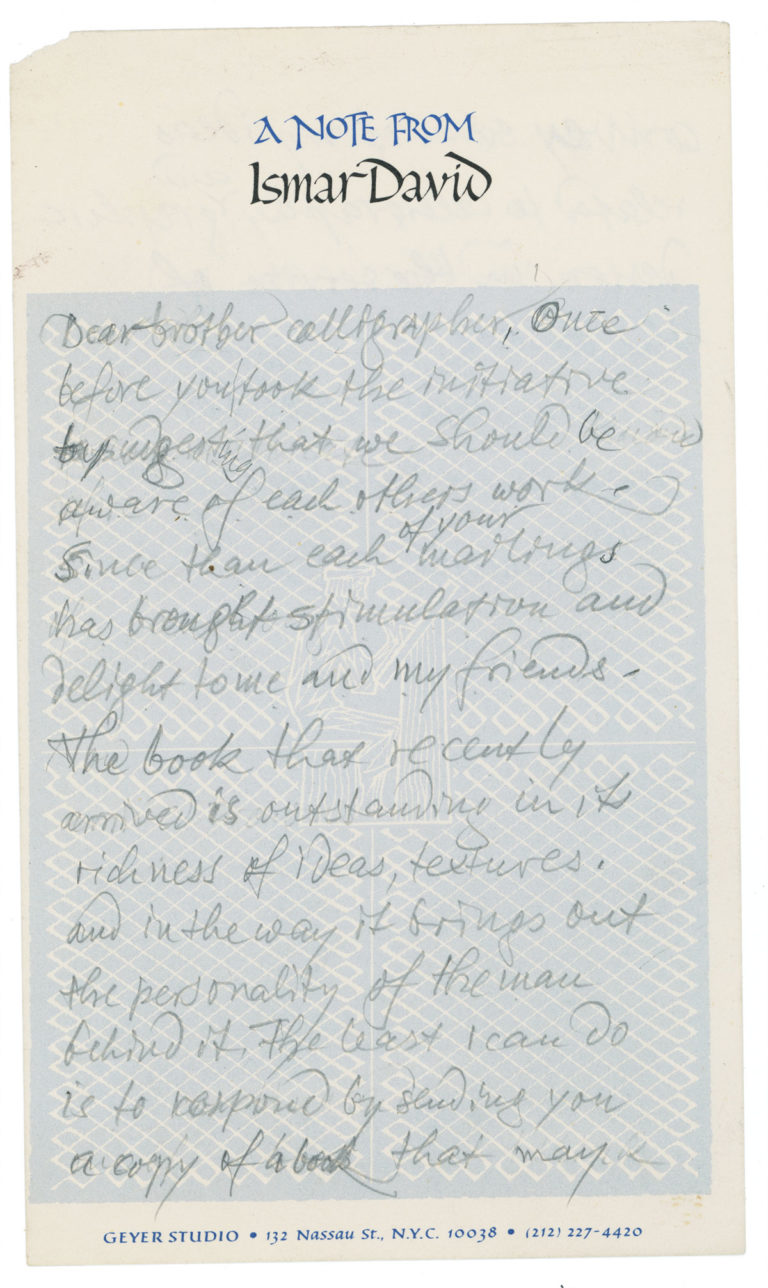 A NOTE FROM
Ismar David
Dear brother calligrapher, Once
before you took the initiative
by suggesting that we should be
aware of each others work.
Since than each of your mailings
has brought stimulation and
delight to me and my friends -
The book that recently
arrived is outstanding in its
richness of ideas, textures.
and in the way it brings out
the personality of the man
behind it. The least I can do
is to respond by sending you
a copy of a book that may
GEYER STUDIO • 132 Nassau St., N.Y.C. 10038 • (212) 227-4420